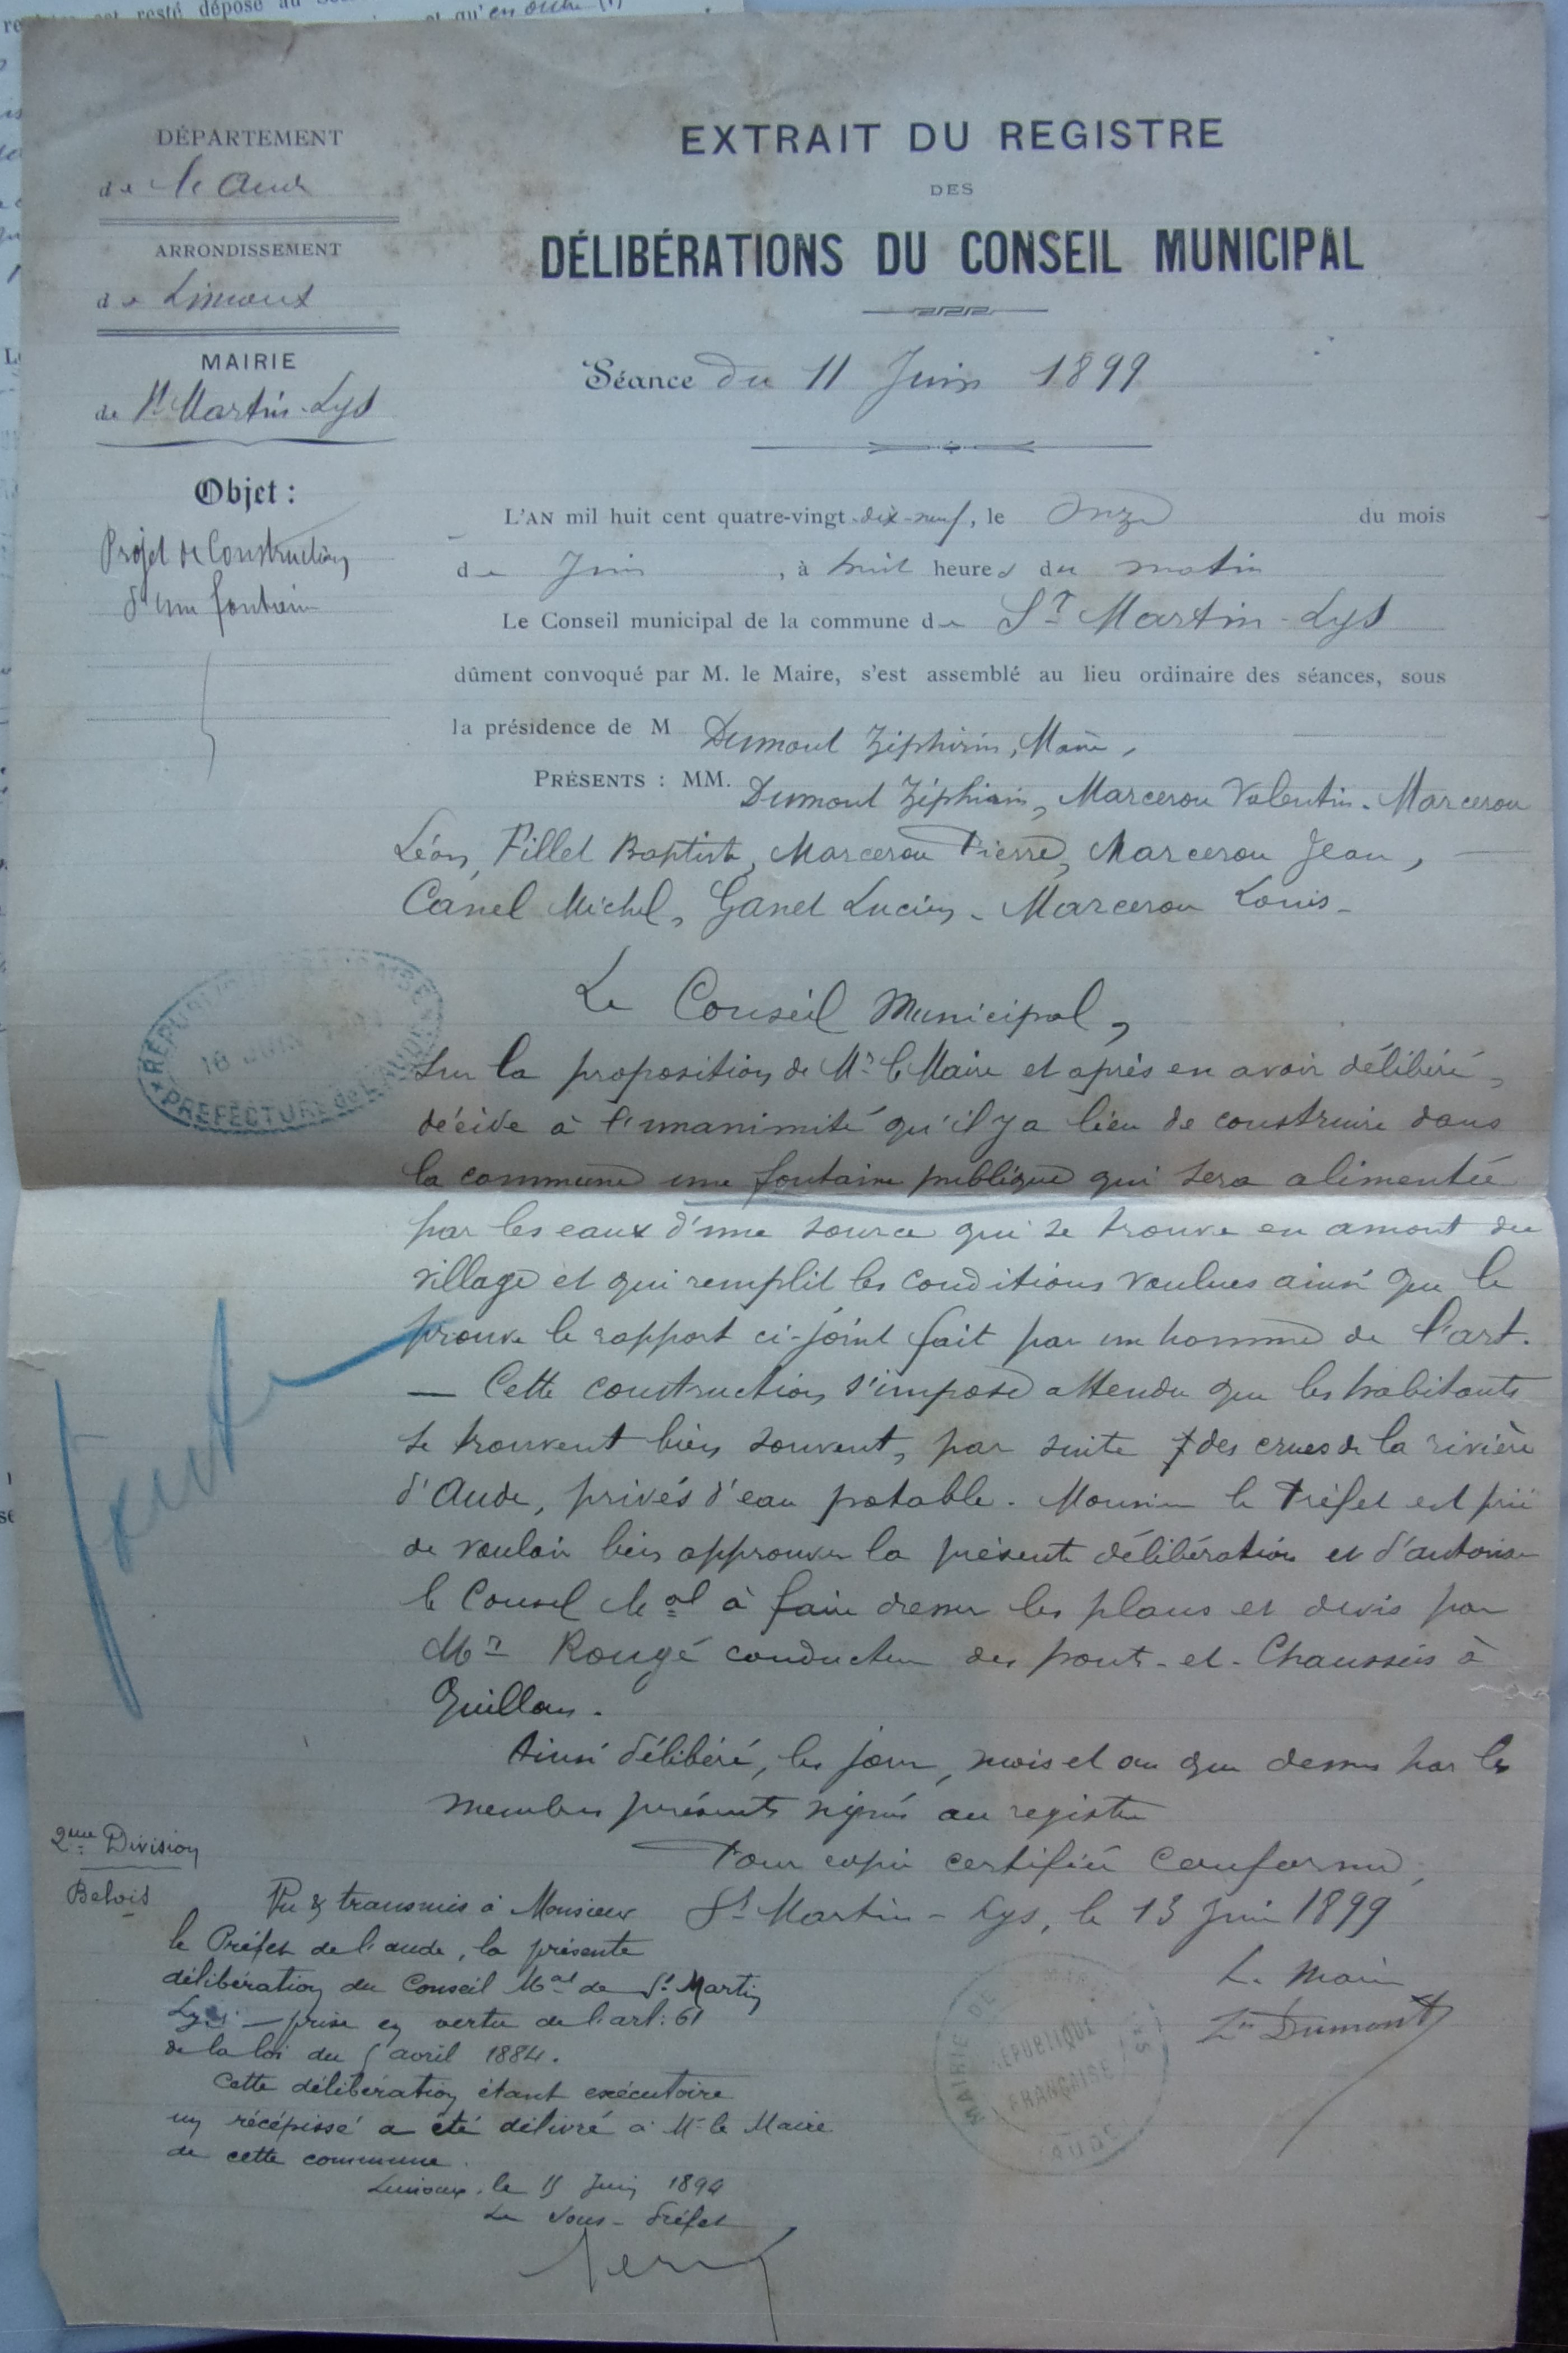 DÉPARTEMENT
de l'Aude
ARRONDISSEMENT
de Limoux
MAIRIE
de St Martin-Lys
Objet :
Projet de Construction
d'une fontaine
EXTRAIT DU REGISTRE
DES
DÉLIBÉRATIONS DU CONSEIL MUNICIPAL
Séance du 11 Juin 1899
L'AN mil huit cent quatre-vingt-dix-neuf, le onze du mois
de Juin, à huit heures du matin
Le Conseil municipal de la commune de St Martin-Lys
dûment convoqué par M. le Maire, s'est assemblé au lieu ordinaire des séances, sous
la présidence de M Dumont Zéphirin, Maire,
PRÉSENTS : MM. Dumont Zéphirin, Marcerou Valentin. Marcerou
Léon, Pillet Baptiste, Marcerou Pierre, Marcerou Jean,
Canel Michel, Ganet Lucien - Marcerou Louis -
Le Conseil Municipal,
Sur la proposition de Mr le Maire et après en avoir délibéré,
décide à l'unanimité qu'il y a lieu de construire dans
la commune une fontaine publique qui sera alimentée
par les eaux d'une source qui se trouve en amont du
village et qui remplit les conditions voulues ainsi que le
prouve le rapport ci-joint fait par un homme de l'art.
— Cette construction s'impose attendu que les habitants
se trouvent bien souvent, par suite des crues de la rivière
d'Aude, privés d'eau potable. Monsieur le Préfet est prié
de vouloir bien approuver la présente délibération et d'autoriser
le Conseil Mal à faire dresser les plans et devis par
Mr Rougé conducteur des pont-et-Chaussées à
Quillan.
Ainsi délibéré, les jour, mois et an que dessus par les
membres présents signés au registre
Pour copie certifiée conforme,
St Martin-Lys, le 13 Juin 1899
Le Maire
Zin Dumont
RÉPUBLIQUE FRANÇAISE
16 JUIN
PRÉFECTURE de L'AUDE
MAIRIE DE
RÉPUBLIQUE
FRANÇAISE
AUDE
2eme Division
Belvis
Vu & transmis à Monsieur
le Préfet de l'aude, la présente
délibération du Conseil Mal de St Martin
Lys — prise en vertu de l'art: 61
de la loi du 5 avril 1884.
Cette délibération étant exécutoire
un récépissé a été délivré à Mr le Maire
de cette commune.
Limoux, le 15 Juin 1899
Le Sous-Préfet